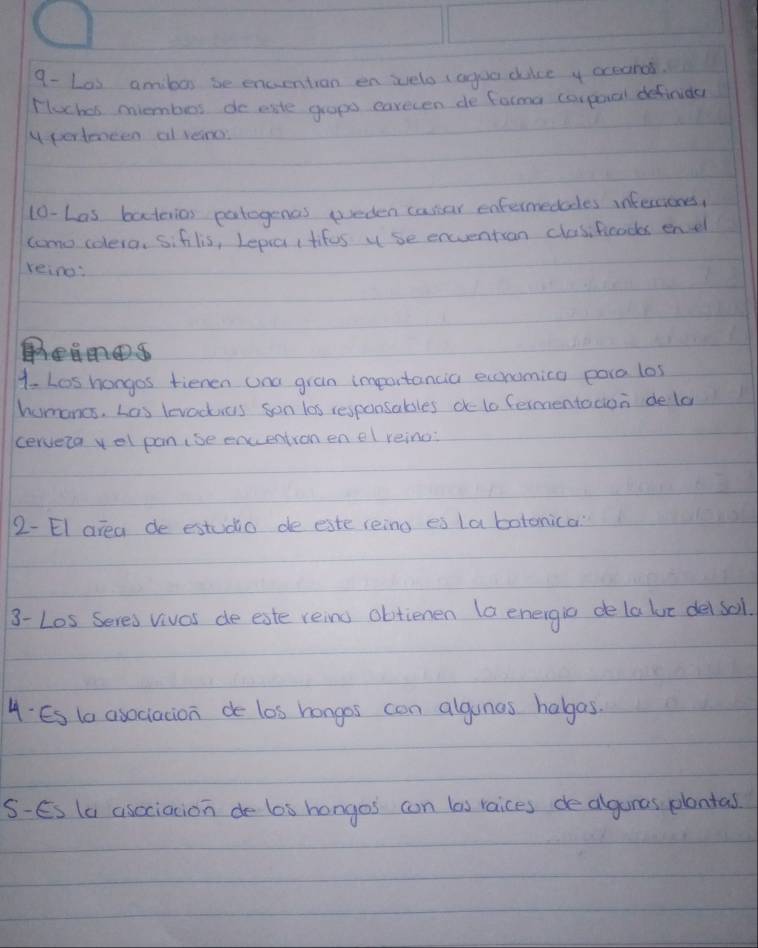 9- Las amibas se encuentran en suelo, agua dulce y oceanos.
Muchos miembros de este grupo carecen de forma corporal definida
y pertenecen al reino:
10- Las bacterias patogenas pueden causar enfermedades infecciones,
como colera, Sifilis, Lepra, tifus y se encuentran clasificadas en el
reino:
Reinos
1- Los hongos tienen una gran importancia economica para los
humanos. Las levaduras son los responsables de la fermentacion de la
cerveza y el pan, se encuentran en el reino:
2- El area de estudio de este reino es la botanica:
3- Los Seres vivos de este reino obtienen la energia de la luz del sol.
4- Es la asociacion de los hongos con algunas halgas.
5- Es la asociacion de los hongos con las raices de algunas plantas